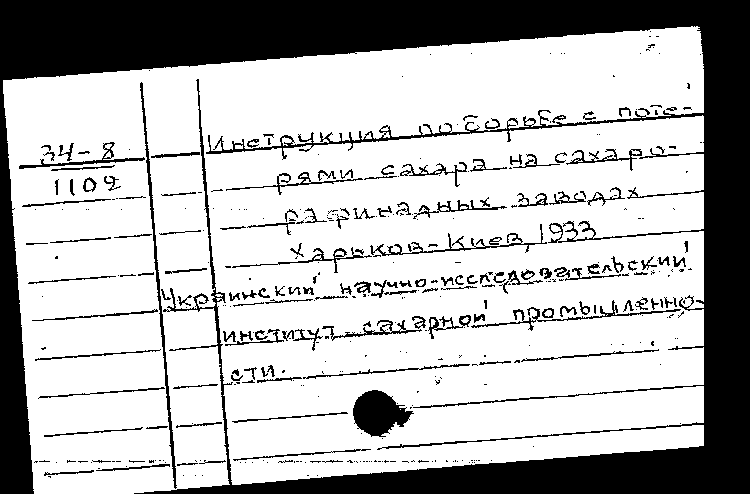 34-8
1102
Инструкция по борьбе с поте-
рями сахара на сахаро-
рафинадных заводах
Харьков-Киев, 1933
Украинский научно-исследовательский
институт сахарной промышленно-
сти.